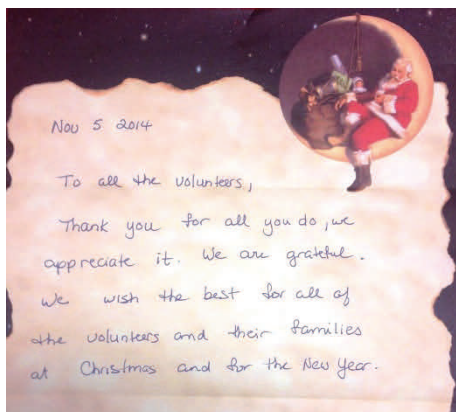 Nov 5 2014
To all the volunteers,
Thank you for all you do, we
appreciate it. We are grateful.
We wish the best for all of
the volunteers and their families
at Christmas and for the New Year.